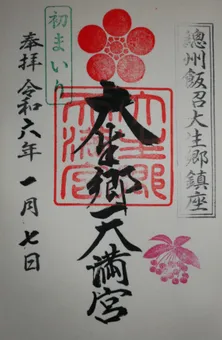 總州飯沼大生郷鎮座
大生郷天満宮
大生郷天満宮
初まいり
奉拝 令和六年 一月七日